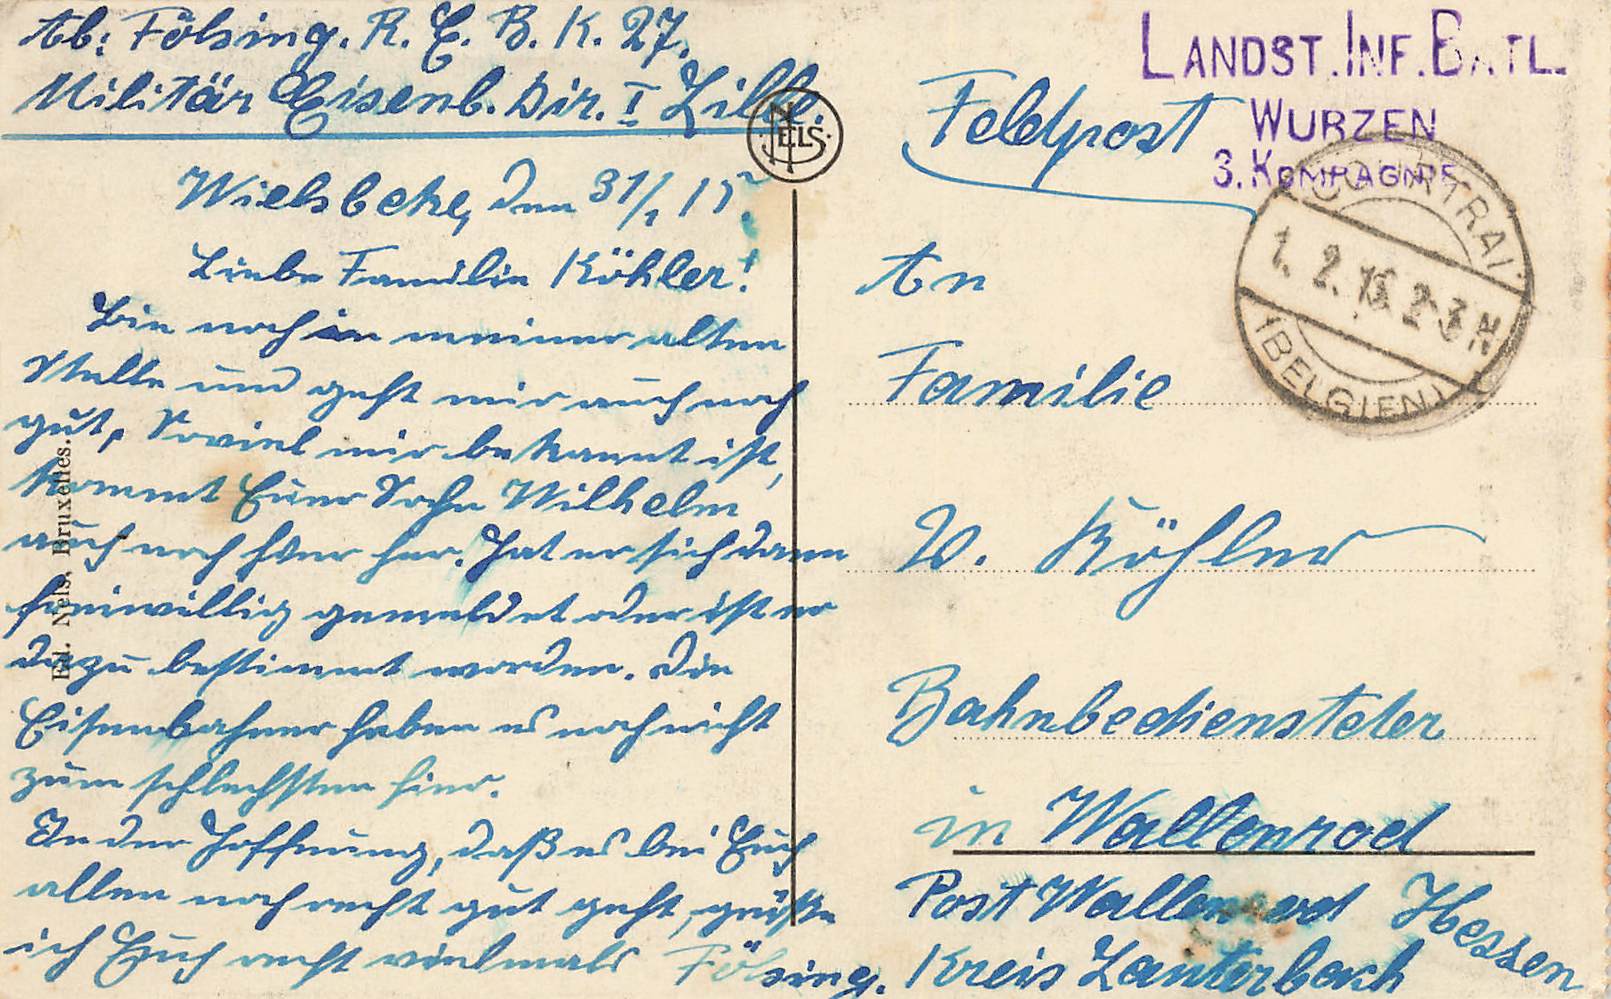 Ab: Fölsing. R. E. B. K. 27.
Militär Eisenb. Dir. I Lille.
Wielsbeke, den 31/1 15.
Liebe Familie Köhler!
Bin noch in meiner alten
Stelle und geht mir auch noch
gut. Soviel mir bekannt ist,
kommt Euer Sohn Wilhelm
auch noch hier her. Hat er sich dann
freiwillig gemeldet oder ist er
dazu bestimmt worden. Die
Eisenbahner haben es noch nicht
zum schlechsten hier.
In der Hoffnung, daß es bei Euch
allen noch recht gut geht, grüße
ich Euch recht vielmals Fölsing.
Ed. Nels, Bruxelles.
NELS
Feldpost
LANDST. INF. BATL.
WURZEN
3. KOMPAGNIE
COURTRAI
1. 2. 15. 2-3 N
(BELGIEN)
An
Familie
W. Köhler
Bahnbediensteter
in Wallenrod
Post Wallenrod Hessen
Kreis Lauterbach